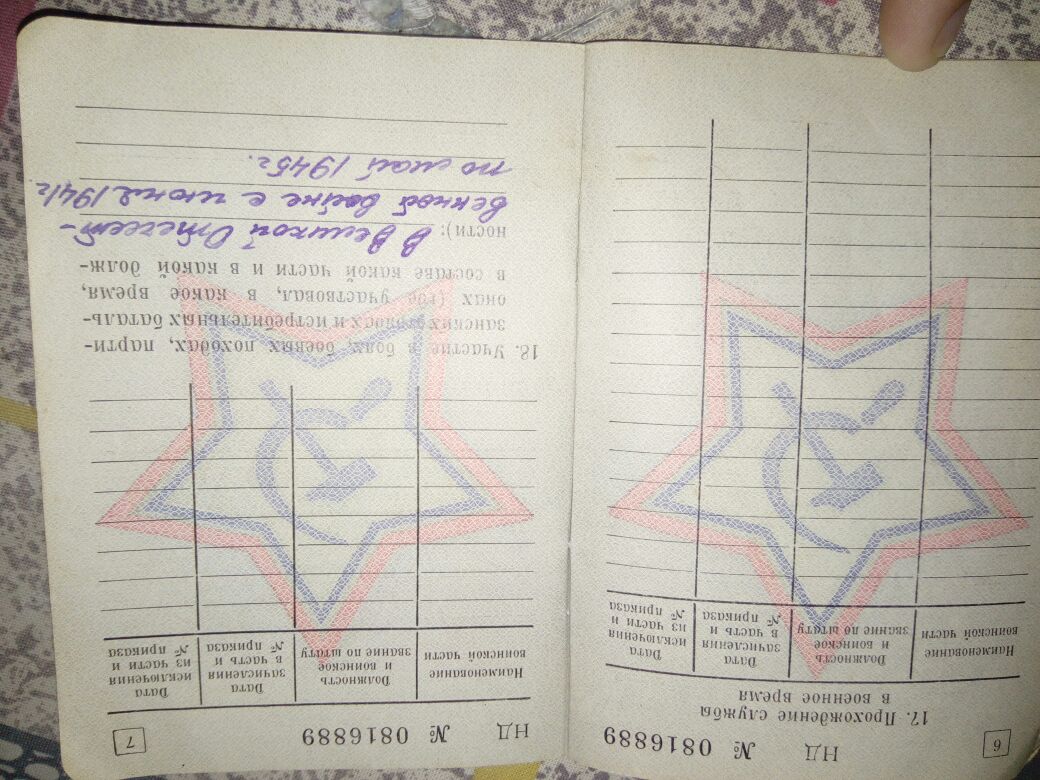 6
НД № 0816889
17. Прохождение службы
в военное время
Наименование
воинской части
Должность
и воинское
звание по штату
Дата
зачисления
в часть и
№ приказа
Дата
исключения
из части и
№ приказа
НД № 0816889
7
Наименование
воинской части
Должность
и воинское
звание по штату
Дата
зачисления
в часть и
№ приказа
Дата
исключения
из части и
№ приказа
18. Участие в боях, боевых походах, парти-
занских отрядах и истребительных баталь-
онах (где участвовал, в какое время,
в составе какой части и в какой долж-
ности): В Великой Отечест-
венной войне с июня 1941г
по май 1945г.